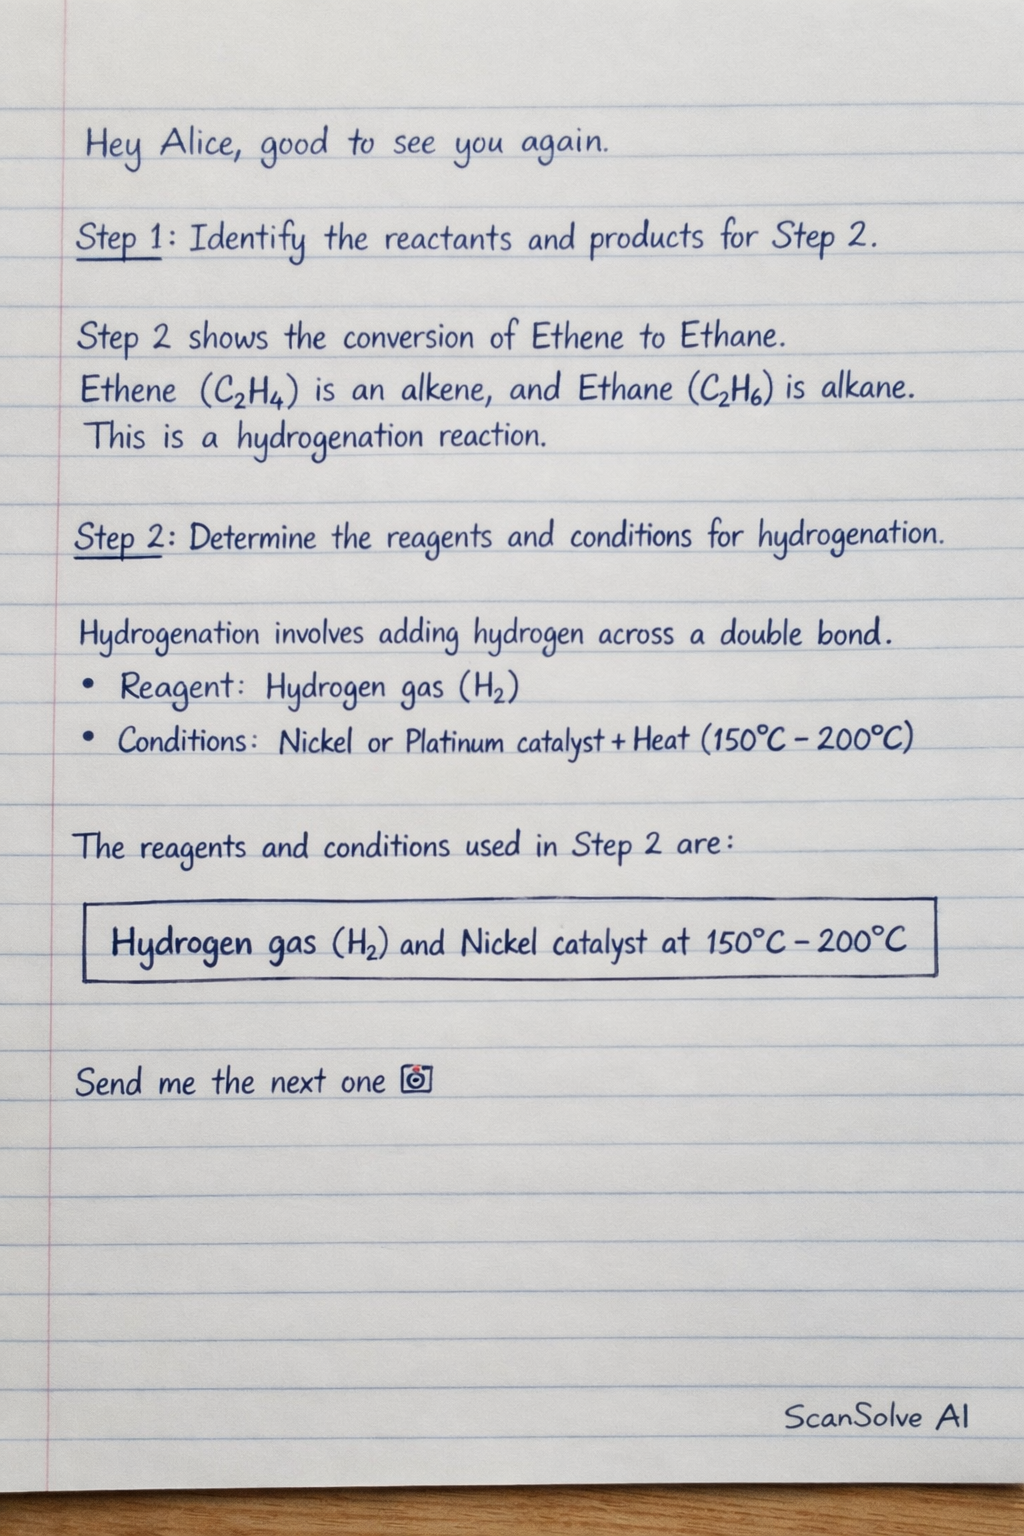 Hey Alice, good to see you again.
Step 1: Identify the reactants and products for Step 2.
Step 2 shows the conversion of Ethene to Ethane.
Ethene (C₂H₄) is an alkene, and Ethane (C₂H₆) is alkane.
This is a hydrogenation reaction.
Step 2: Determine the reagents and conditions for hydrogenation.
Hydrogenation involves adding hydrogen across a double bond.
• Reagent: Hydrogen gas (H₂)
• Conditions: Nickel or Platinum catalyst + Heat (150°C – 200°C)
The reagents and conditions used in Step 2 are:
Hydrogen gas (H₂) and Nickel catalyst at 150°C – 200°C
Send me the next one 📷
ScanSolve AI